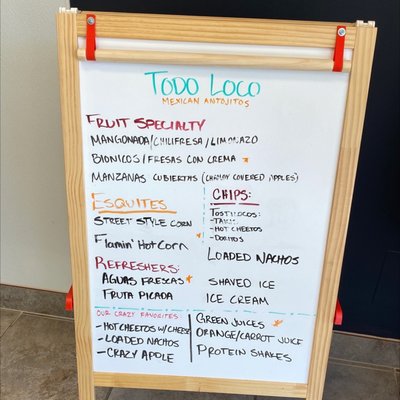 TODO LOCO
MEXICAN ANTOJITOS
FRUIT SPECIALTY
MANGONADA/CHILIFRESA/LIMONAZO
BIONICOS/FRESAS CON CREMA
MANZANAS CUBIERTAS (CHAMOY COVERED APPLES)
ESQUITES
STREET STYLE CORN
Flamin' Hot Corn
REFRESHERS:
AGUAS FRESCAS
FRUTA PICADA
CHIPS:
TOSTILOCOS:
-TAKIS
-HOT CHEETOS
-DORITOS
LOADED NACHOS
SHAVED ICE
ICE CREAM
OUR CRAZY FAVORITES
-HOT CHEETOS W/CHEESE
-LOADED NACHOS
-CRAZY APPLE
GREEN JUICES
ORANGE/CARROT JUICE
PROTEIN SHAKES